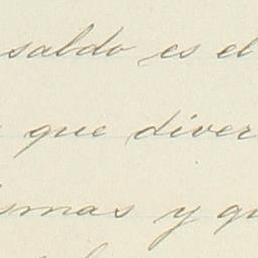 saldo es el
que diver
ismas y qu